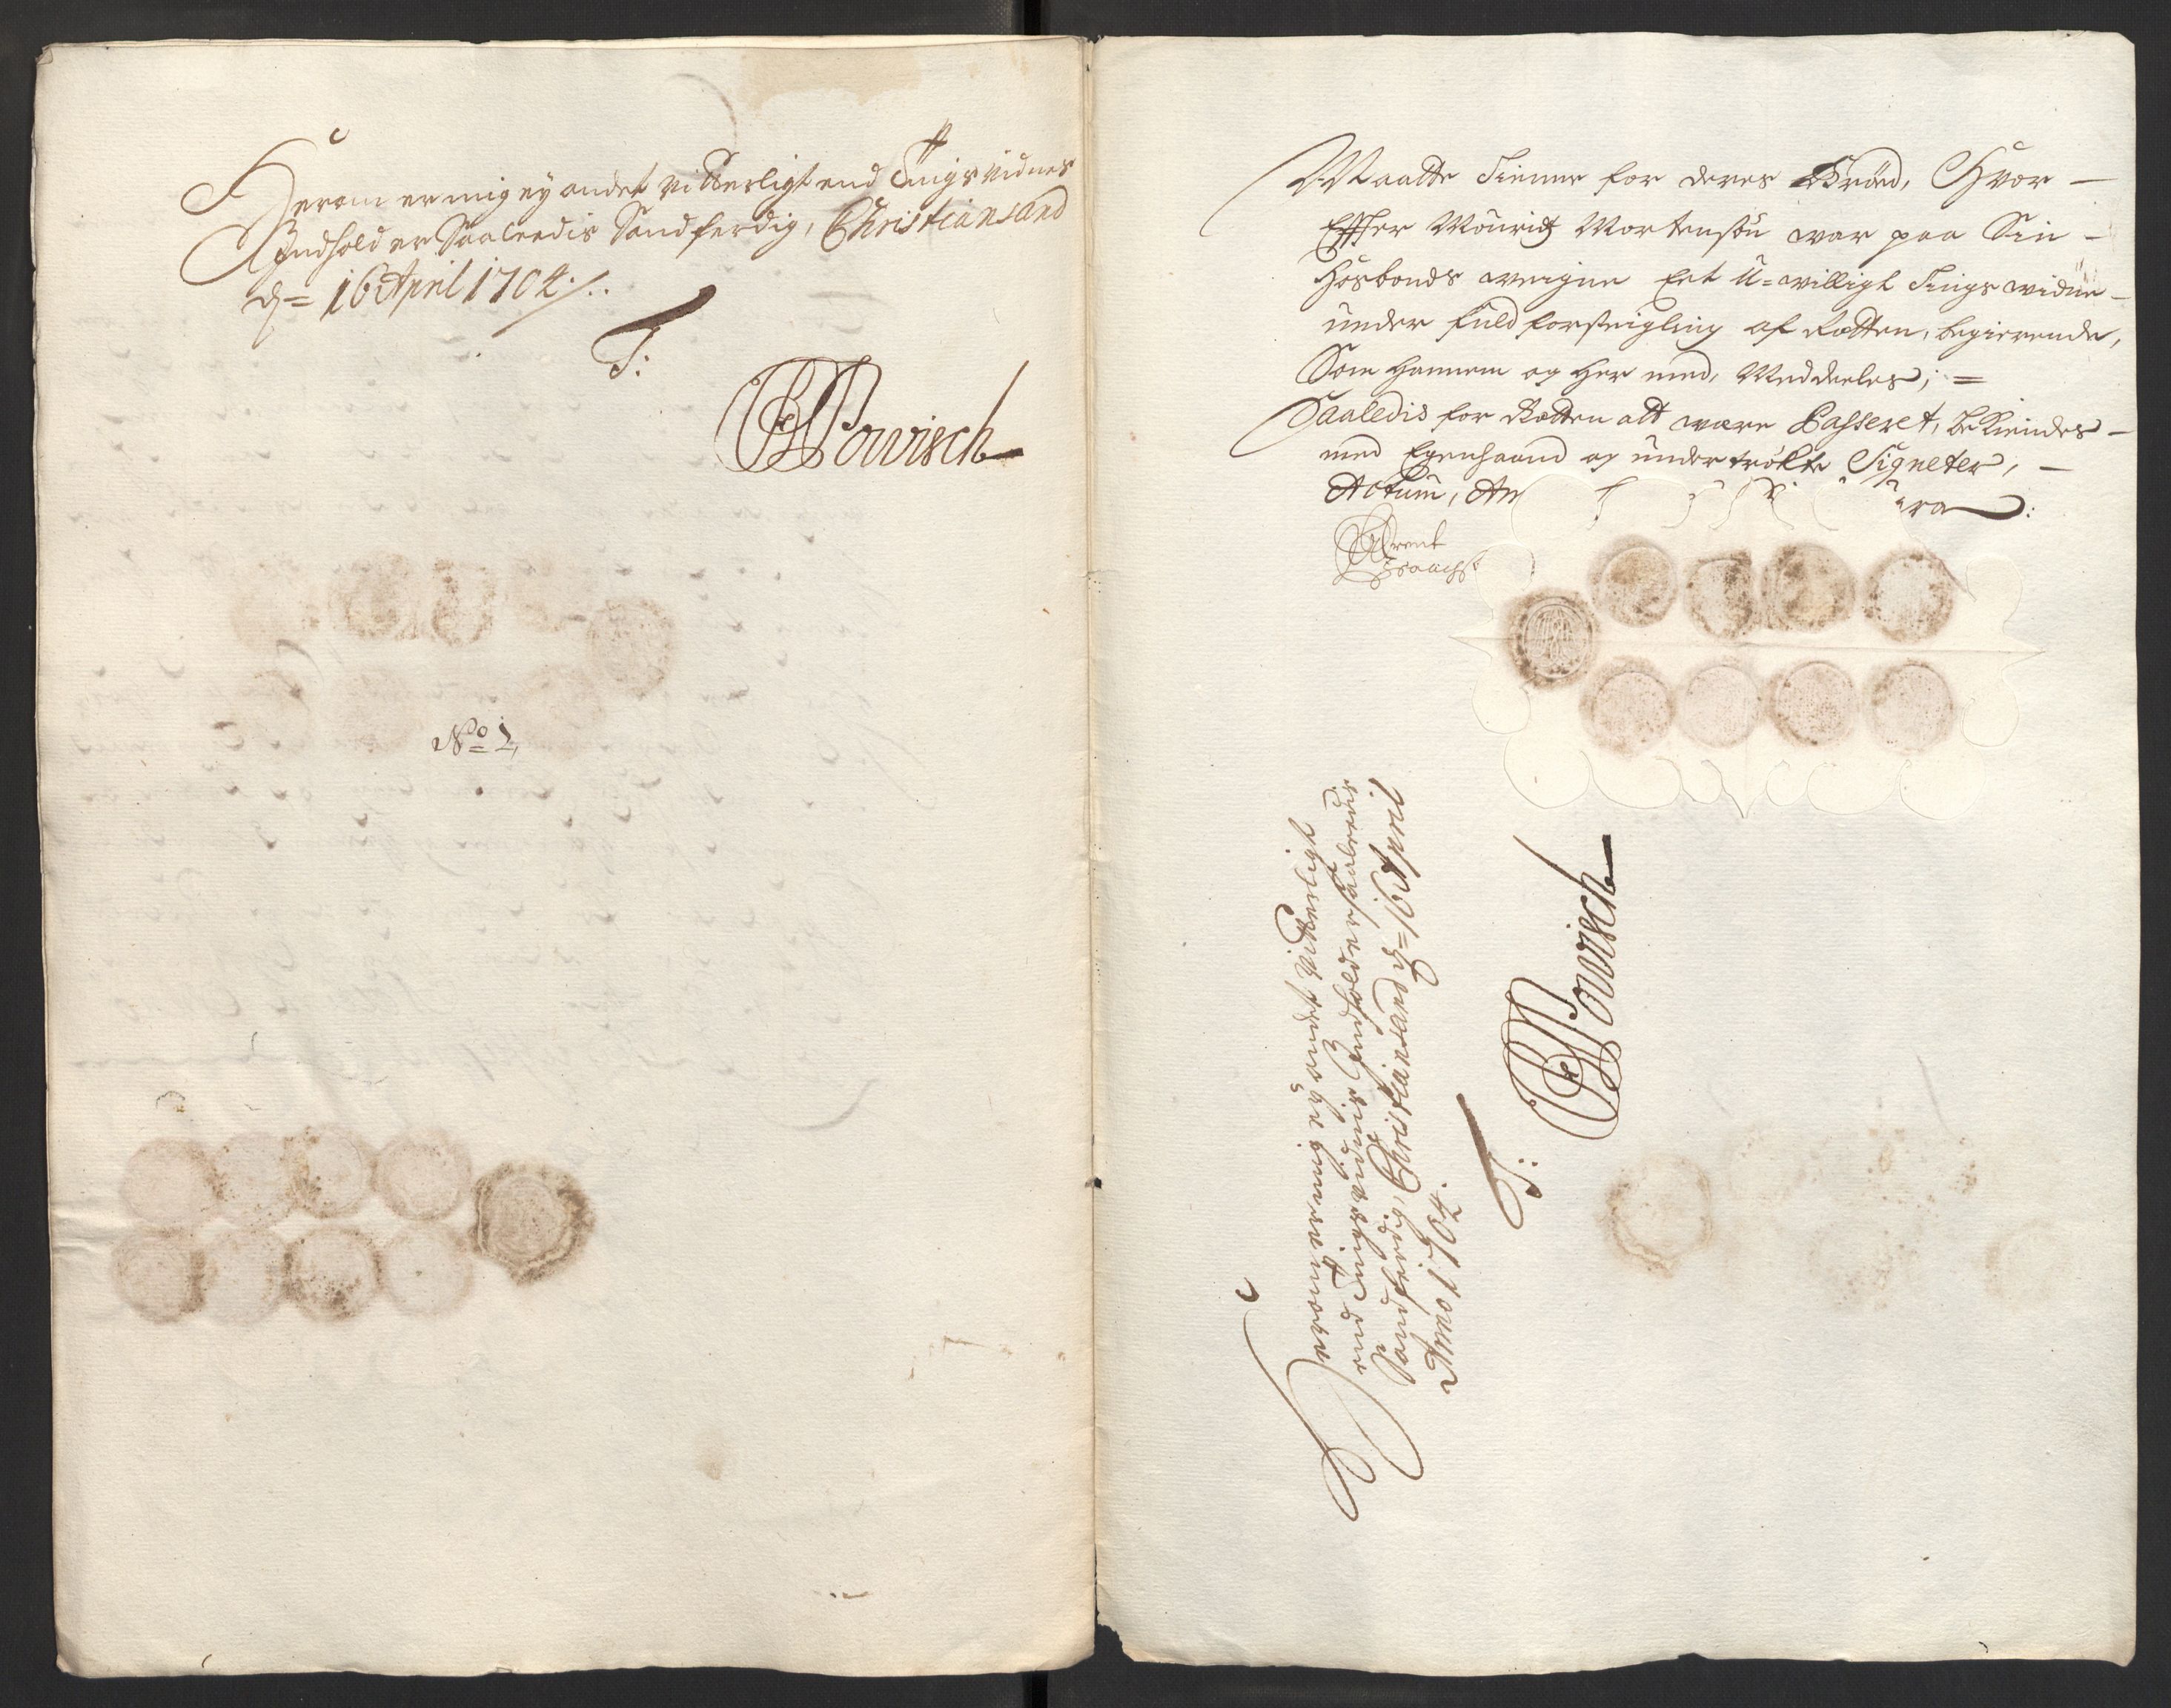 Herom er mig ey andet vitterligt end Tingsvidnes
Indhold er Saaleedis Sandferdig, Christiansand
d= 16 April 1704 ./.
T:
Powisch
No 1,
Maatte Tienne for deres Brød, Hvor -
Effter Mouritz Mortensøn war paa Sin -
Hosbonds weigne Eet U=willigt Tings widne -
under fuld forseigling af Retten, begierende,
Som hannem og her med, Meddeeles; =
Saaledis for Retten att were Passeret, bekiendes -
med Egenhaand og undertrøkte Signeter, -
Actum, An ra :
Arent
Isaachs
Herom er mig ey andet vitterligt
end Tingsvidnis Indholder saaleedis
Sandferdig, Christiansand d= 16 April
Anno 1704.
T:
Powisch